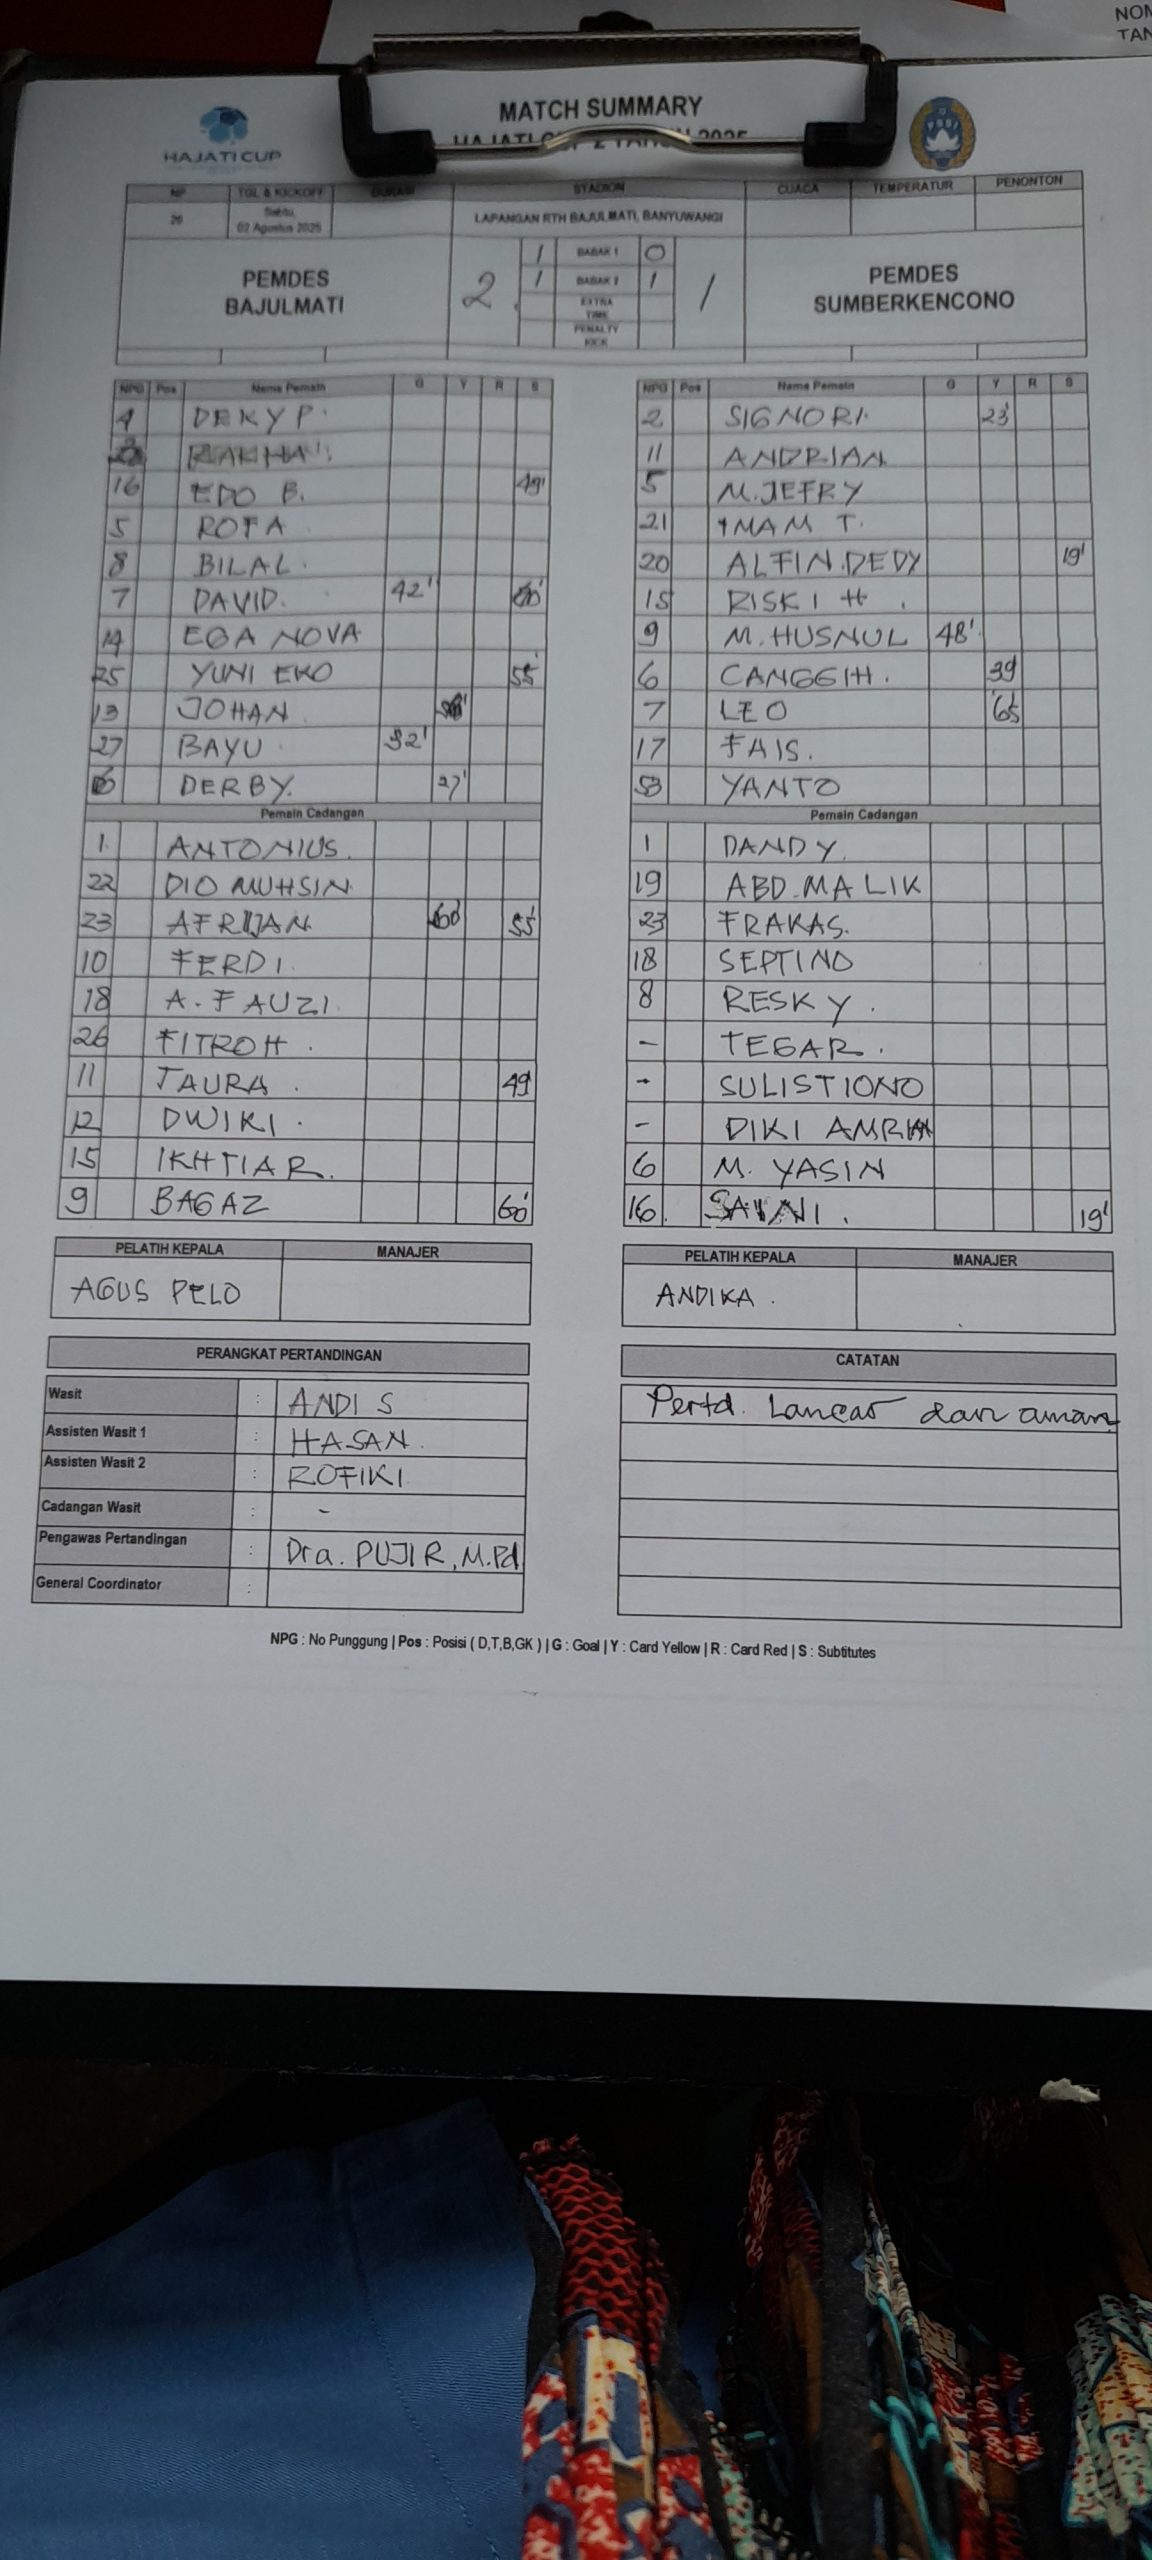 NOM
TAN
MATCH SUMMARY
HAJATI CUP 2 TAHUN 2025
HAJATI CUP
NP TGL & KICKOFF DURASI STADION CUACA TEMPERATUR PENONTON
26 Sabtu, 02 Agustus 2025 LAPANGAN RTH BAJULMATI, BANYUWANGI
PEMDES BAJULMATI 2 1 BABAK 1 0 1 PEMDES SUMBERKENCONO
1 BABAK 2 1
EXTRA TIME
PENALTY KICK
NPG Pos Nama Pemain G Y R S
4 DEKY P.
RAKHA
16 EDO B. 49'
5 ROFA
8 BILAL.
7 DAVID. 42' 60'
14 EGA NOVA
25 YUNI EKO 55'
13 JOHAN
27 BAYU 32'
6 DERBY. 27'
Pemain Cadangan
1. ANTONIUS.
22 DIO MUHSIN
23 AFRIJAN 60' 55'
10 FERDI.
18 A. FAUZI.
26 FITROH.
11 TAURA. 49'
12 DWIKI.
15 IKHTIAR.
9 BAGAZ 60'
PELATIH KEPALA MANAJER
AGUS PELO
NPG Pos Nama Pemain G Y R S
2 SIGNORI. 23'
11 ANDRIAN
5 M. JEFRY
21 IMAM T.
20 ALFIN.DEDY 19'
15 RISKI H.
9 M. HUSNUL 48'
6 CANGGIH. 39'
7 LEO 65'
17 FAIS.
53 YANTO
Pemain Cadangan
1 DANDY.
19 ABD. MALIK
23 FRAKAS.
18 SEPTINO
8 RESKY.
- TEGAR.
- SULISTIONO
- DIKI
6 M. YASIN
16. 19'
PELATIH KEPALA MANAJER
ANDIKA.
PERANGKAT PERTANDINGAN
Wasit : ANDI S
Assisten Wasit 1 : HASAN.
Assisten Wasit 2 : ROFIKI
Cadangan Wasit : -
Pengawas Pertandingan : Dra. PUJI R, M.Pd
General Coordinator :
CATATAN
Pertd. Lancar dan aman
NPG : No Punggung | Pos : Posisi ( D,T,B,GK ) | G : Goal | Y : Card Yellow | R : Card Red | S : Subtitutes